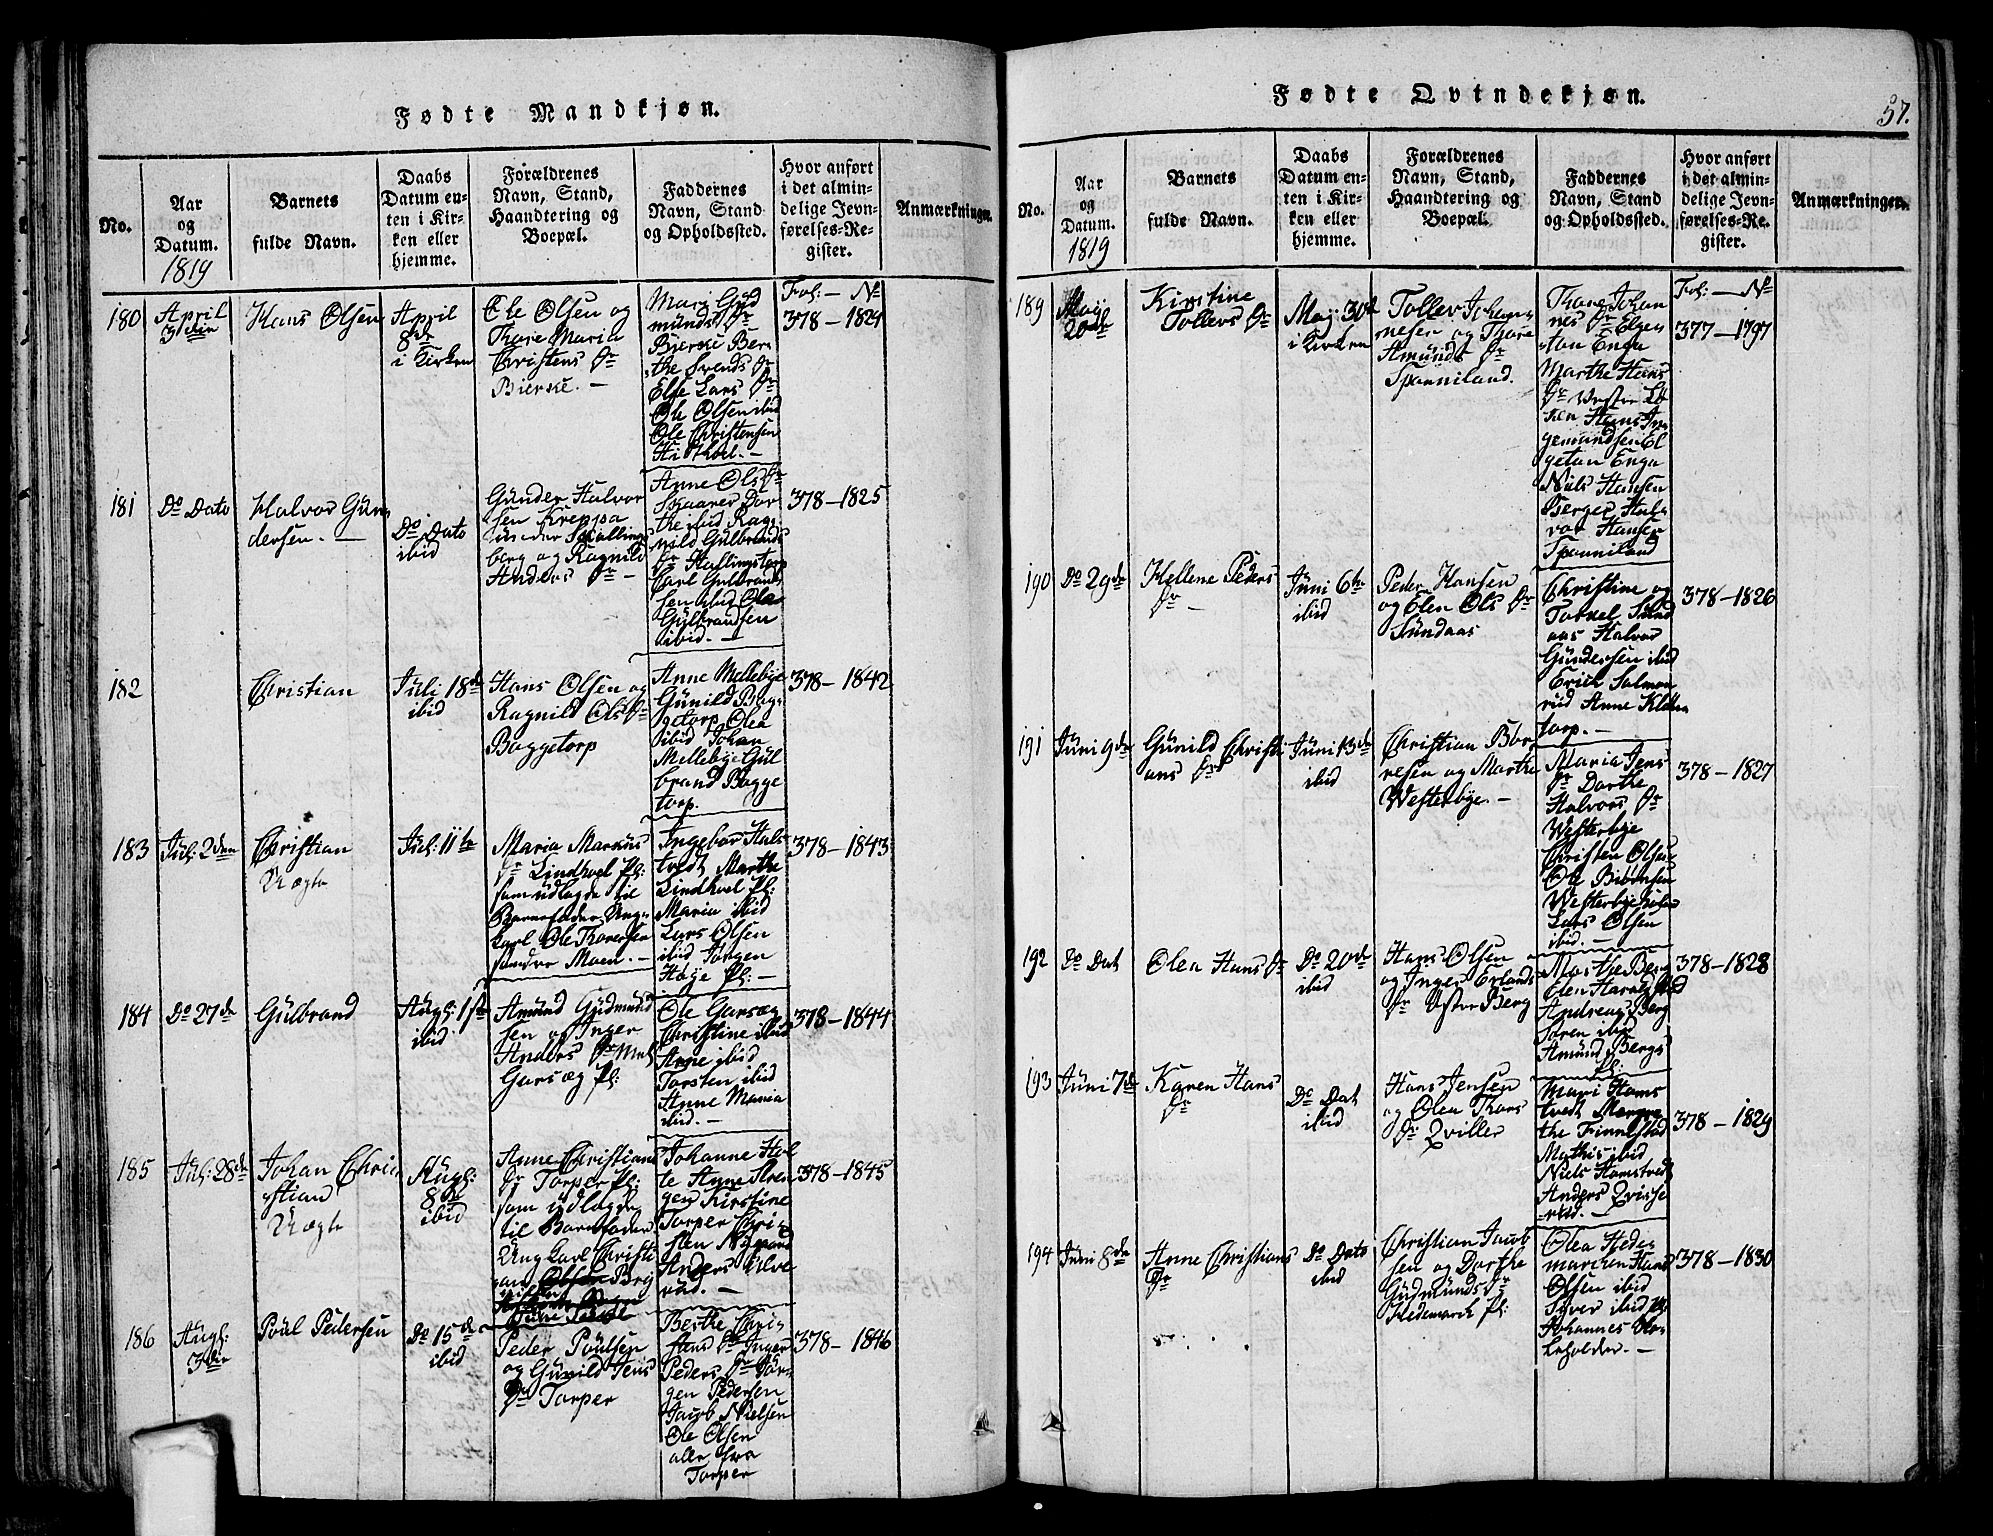 Fødte Mandkjøn.
No.
Aar
og
Datum.
1819
Barnets
fulde Navn.
Daabs
Datum en-
ten i Kir-
ken eller
hjemme.
Forældrenes
Navn, Stand,
Haandtering og
Boepæl.
Faddernes
Navn, Stand
og Opholdssted.
Hvor anført
i det almin-
delige Jevn-
førelses-Re-
gister.
Anmærkninger.
180
April
3die
Hans Olsen
April
8de
i Kirken
Ole Olsen og
Thore Maria
Christens Dr
Bierke. —
Mari Gud
munds Dr
Bierke Ber-
the Svends Dr
Else Lars Dr
Ole Olsen ibid
Ole Christensen
Fol: — No
378 – 1824
181
Do Dato
Halvor Gün
dersen. —
Do Dato
ibid
Günder Halvor
sen Kreppa
under
berg og Ragnild
Anders Dr —
Anne Ols Dr
Skaarer Dor
the ibid Rag
nild Gülbrands
Dr Hallingstorp
Carl Gülbrand
sen ibid Ole
Gülbrandsen
ibid. —
378 – 1825
182
Christian
Juli 18de
ibid
Hans Olsen og
Ragnild Ols Dr
Baggetorp
Anne Mellebye
Günild Bag
getorp Olea
ibid Johan
Mellebye Gül
brand Bagge
torp.
378 – 1842
183
Jul: 2den
Christian
Uægte
Jul: 11te
Maria Markus
Dr Lindhoel Pl:
som udlagde til
Barnefader Ung-
karl Ole Thoresen
søndre Moen. —
Ingebor Huls
tvedt Marthe
Lindhoel Pl:
Maria ibid
Lars Olsen
ibid Jørgen
Haje Pl: —
378 – 1843
184
Do 27de
Gülbrand
Aügs: 1ste
ibid
Amünd Gudmünd
sen og Inger
Anders Dr
Garsæg Pl:
Ole Garsæg
Christine ibid
Anne ibid
Torsten ibid
Anne Maria
ibid. —
378 – 1844
185
Jul: 28de
Johan Chri
stian
Uægte
Aügs:
8de
ibid
Anne Christians
Dr Torper Pl:
som udlagde
til Barnefader
Ungkarl Christi
an Olsen
Johanne Hol
te Anne
gen Kirstine
Torper Chri-
sten
Anders Ulve
rud. —
378 – 1845
186
Aügs:
3die
Poül Pedersen
Do 15de
ibid
Peder Poülsen
og Günild Jens
Dr Torper
Berthe Chri-
stians Dr Inger
Peders Dr Jør-
gen Pedersen
Jacob Nielsen
Ole Olsen
alle fra
Torper
378 – 1846
Fødte Qvindekjøn.
57.
No.
Aar
og
Datum.
1819
Barnets
fulde Navn.
Daabs
Datum en-
ten i Kir-
ken eller
hjemme.
Forældrenes
Navn, Stand,
Haandtering og
Boepæl.
Faddernes
Navn, Stand
og Opholdssted.
Hvor anført
i det almin-
delige Jevn-
førelses-Re-
gister.
Anmærkninger.
189
Maÿ
20de
Kirstine
Tollevs Dr
Maÿ 30te
i Kirken
Tollev Johan-
nesen og Thore
Amunds Dr
Spanniland.
Thore Johan
nes Dr Elge-
tan Enga
Marthe Hans
Dr Vestre
Hans In
gemundsen El
getan Enga
Niels Hansen
Berger Hal
vor Hansen
Spanniland
Fol: — No
377 – 1797
190
Do 29de
Hellene Peders
Dr
Jüni 6te
ibid
Peder Hansen
og Elen Ols Dr
Sündaas
Christine og
Torkel Sünd
aas Halvor
Gündersen ibid
Erich Salmon
rüd Anne
torp.
378 – 1826
191
Jüni 9de
Günild Christi
ans Dr
Jüni 13de
ibid
Christian Bør
resen og Marthe
Westerbye. —
Maria Jens
Dr Dorthe
Halvors Dr
Westerbye
Christen Olsen
Ole Biörnsen
Westerbye
Lars Olsen
ibid. —
378 – 1827
192
Do Dat
Olea Hans Dr
Do 20de
ibid
Hans Olsen
og Inger Erlands
Dr Østre Berg
Marthe Berg
Elen
Andreas Berg
Søren ibid
Amünd Bergs
Pl:
378 – 1828
193
Jüni 7de
Karen Hans
Dr
Do Dat
ibid
Hans Jensen
og Olea Thors
Dr Qviller
Mari Hams
tvedt Margre
the Finnestad
Mathis ibid
Niels Hamstvedt
Anders Qvisse
rüd. —
378 – 1829
194
Jüni 8de
Anne Christians
Dr
Do Dato
ibid
Christian Jacob
sen og Dorthe
Gudmünds Dr
Hedemarck Pl:
Olea Hede
marcken Hans
Olsen ibid
Siver ibid
Johannes
beholder. —
378 – 1830